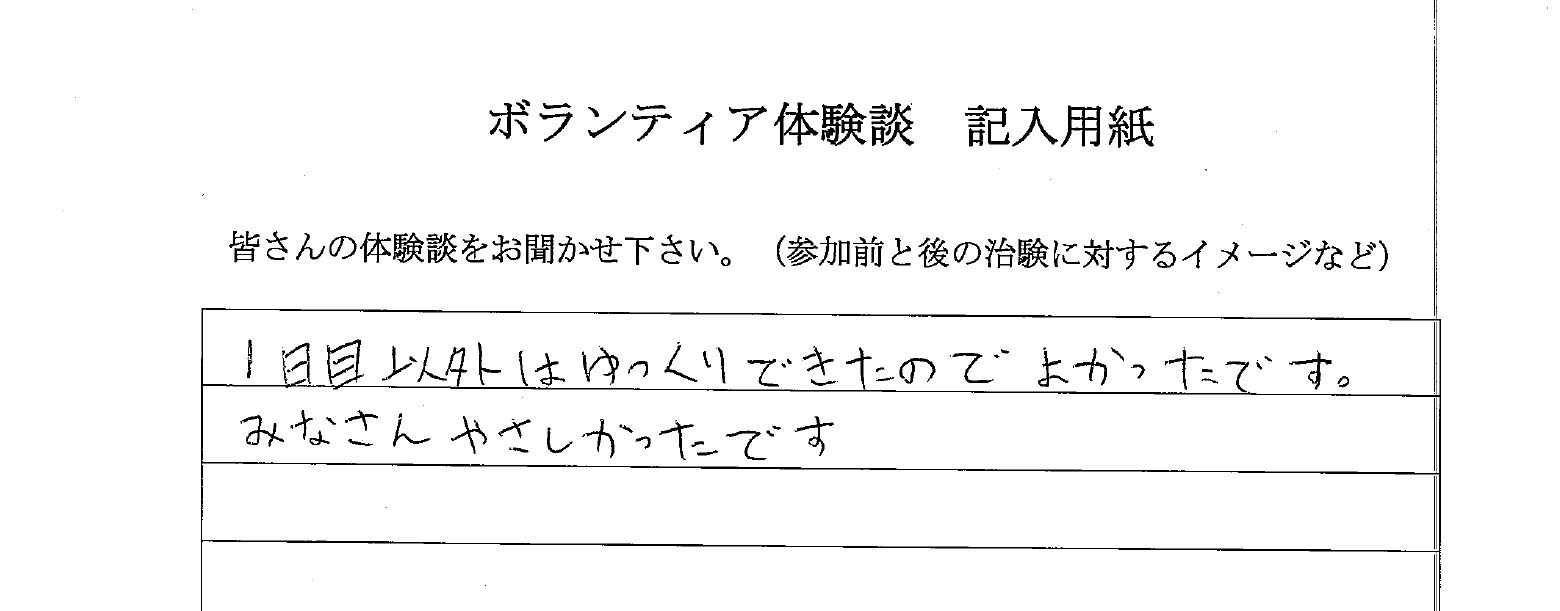 ボランティア体験談　記入用紙
皆さんの体験談をお聞かせ下さい。（参加前と後の治験に対するイメージなど）
1日目以外はゆっくりできたのでよかったです。
みなさんやさしかったです